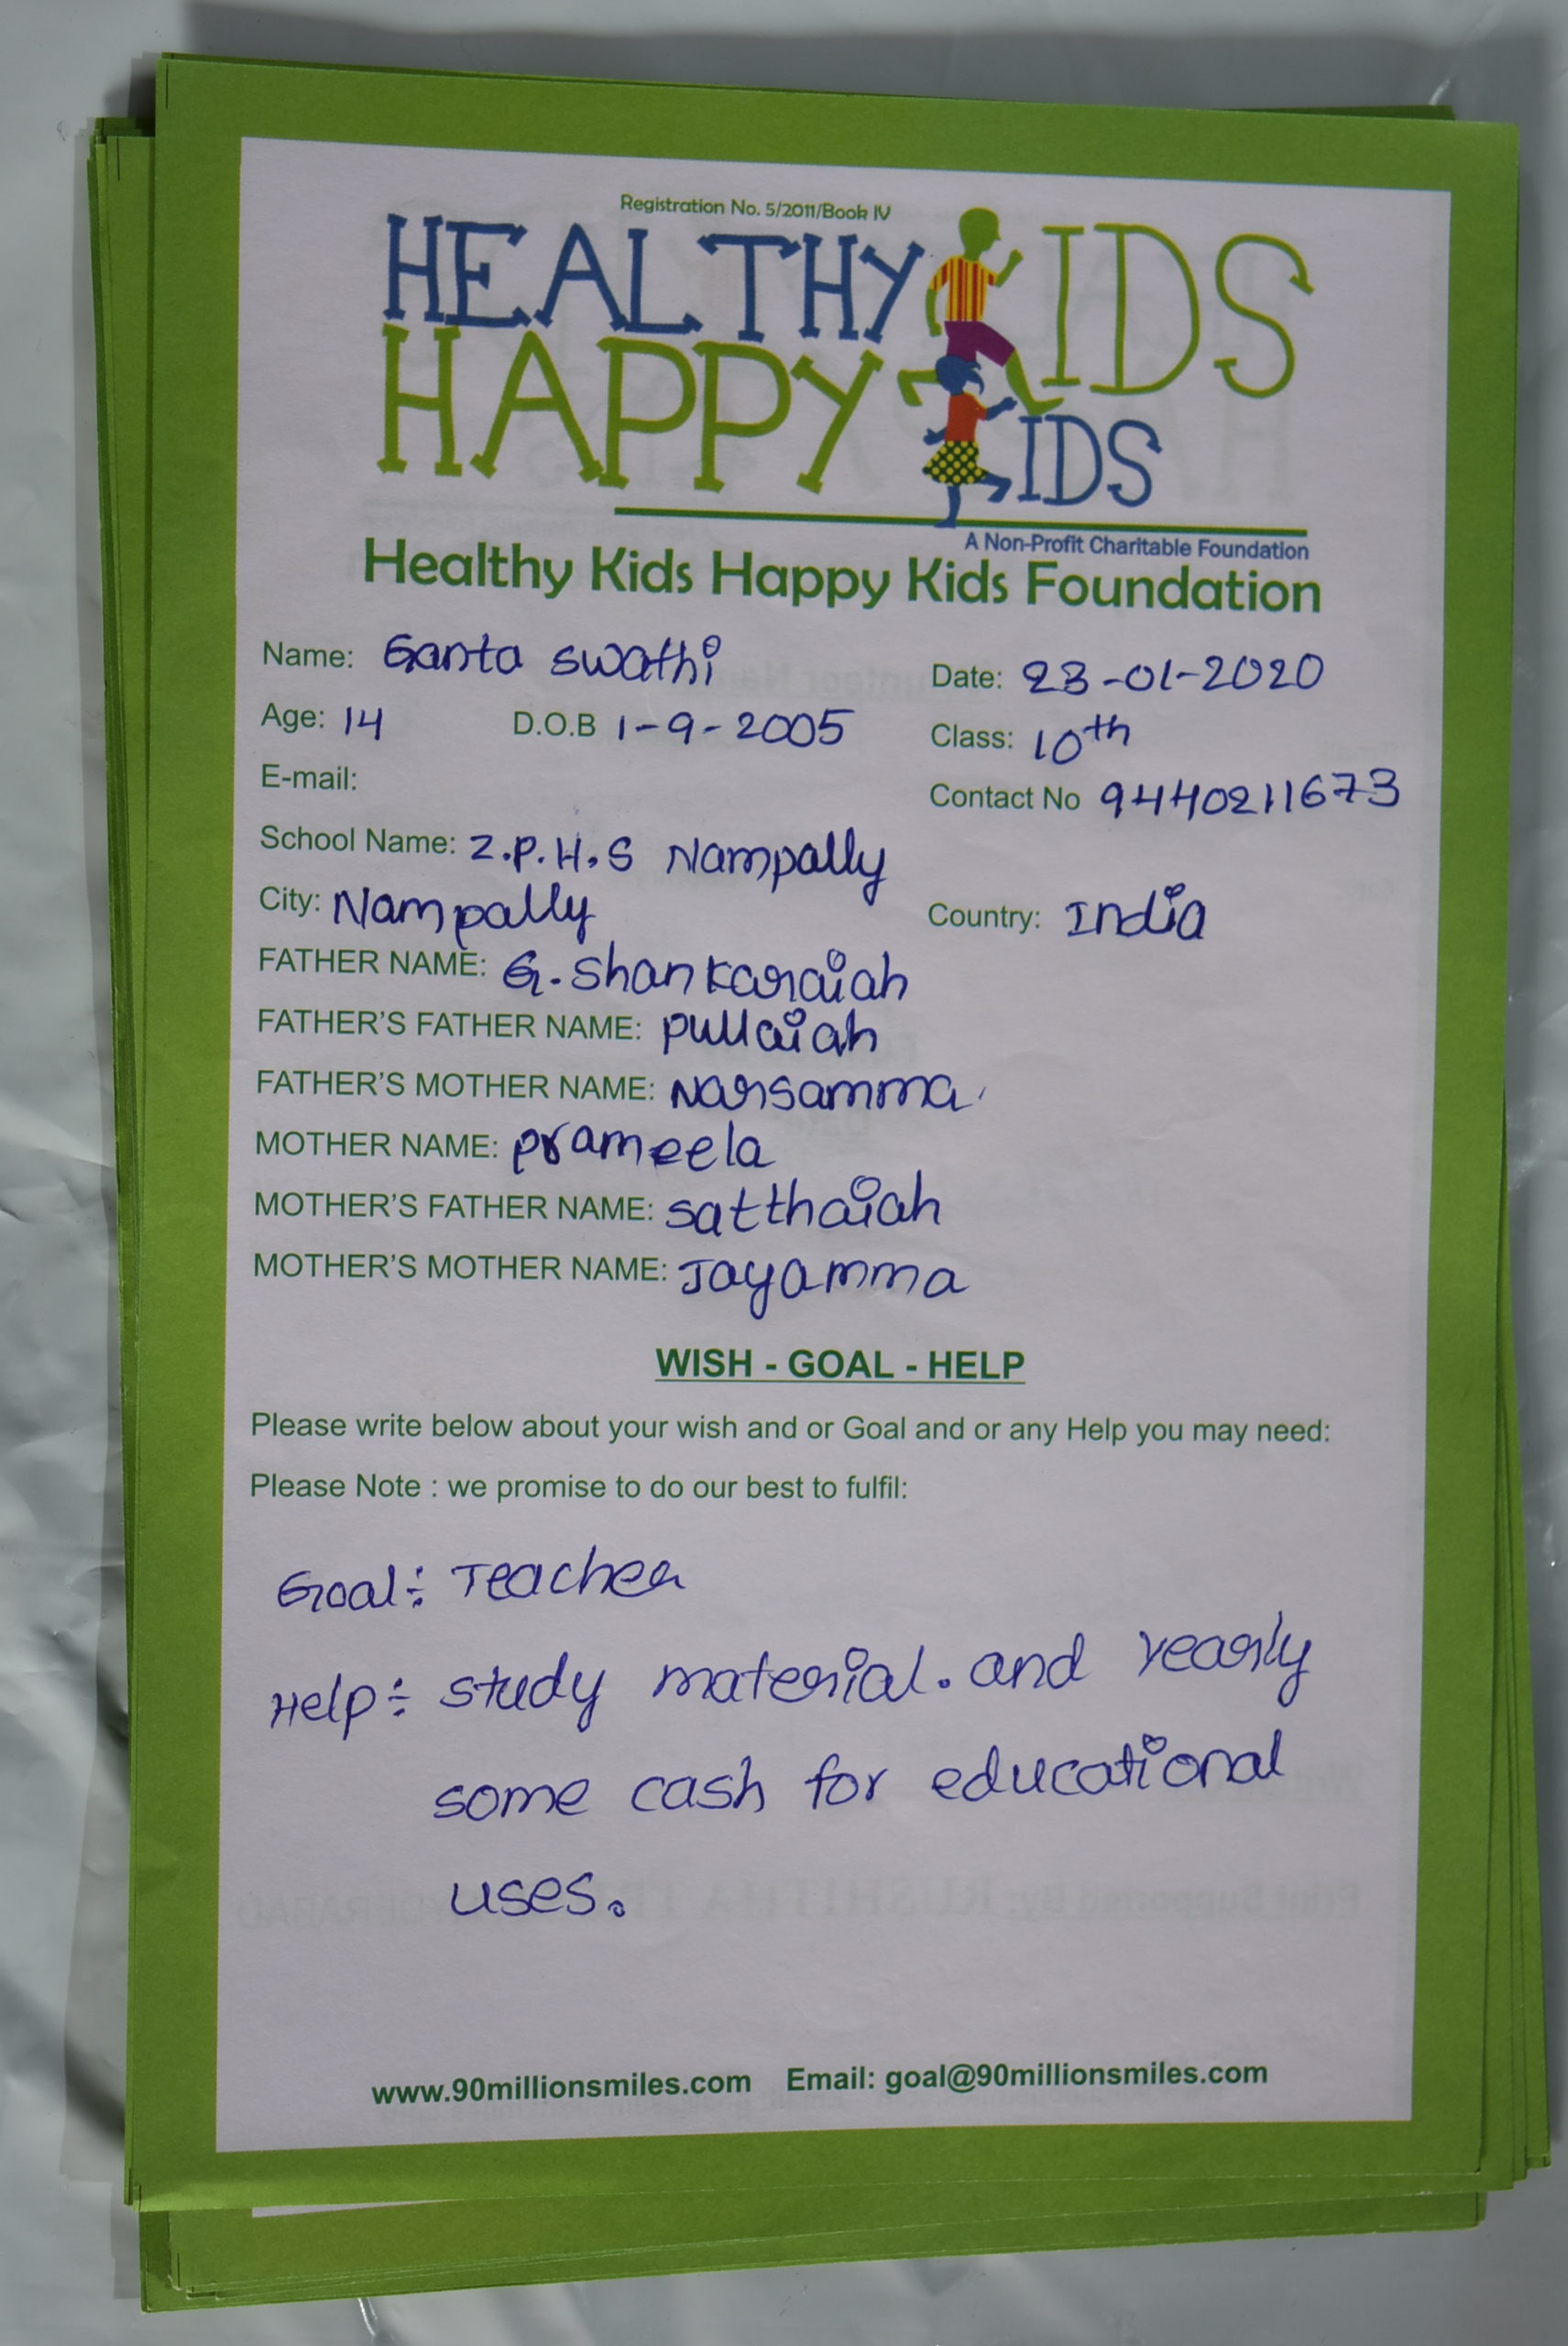 Registration No. 5/2011/Book IV
HEALTHY KIDS
HAPPY KIDS
A Non-Profit Charitable Foundation
Healthy Kids Happy Kids Foundation
Name: Ganta swathi Date: 23-01-2020
Age: 14 D.O.B 1-9-2005 Class: 10th
E-mail: Contact No 9440211673
School Name: Z.P.H.S Nampally
City: Nampally Country: India
FATHER NAME: G. Shankaraiah
FATHER'S FATHER NAME: pullaiah
FATHER'S MOTHER NAME: Narsamma
MOTHER NAME: prameela
MOTHER'S FATHER NAME: satthaiah
MOTHER'S MOTHER NAME: Jayamma
WISH - GOAL - HELP
Please write below about your wish and or Goal and or any Help you may need:
Please Note : we promise to do our best to fulfil:
Goal:- Teacher
Help:- study material. and yearly
some cash for educational
uses.
www.90millionsmiles.com Email: goal@90millionsmiles.com